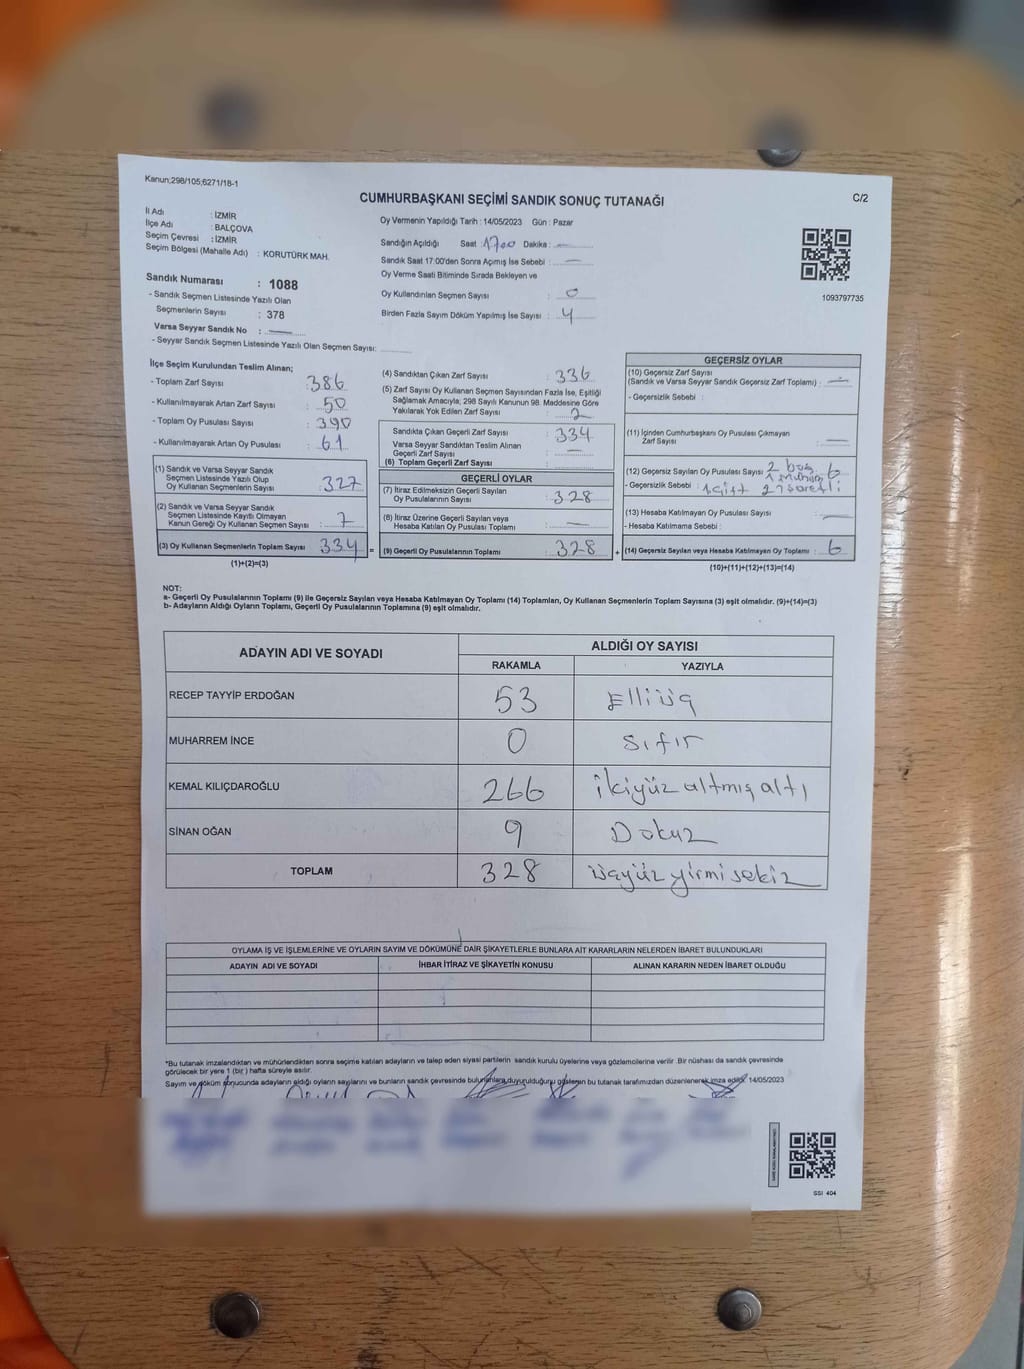 Kanun;298/105;6271/18-1
C/2
CUMHURBAŞKANI SEÇİMİ SANDIK SONUÇ TUTANAĞI
İl Adı : İZMİR
İlçe Adı : BALÇOVA
Seçim Çevresi : İZMİR
Seçim Bölgesi (Mahalle Adı) : KORUTÜRK MAH.
Sandık Numarası : 1088
- Sandık Seçmen Listesinde Yazılı Olan
Seçmenlerin Sayısı : 378
Varsa Seyyar Sandık No : —
- Seyyar Sandık Seçmen Listesinde Yazılı Olan Seçmen Sayısı:
Oy Vermenin Yapıldığı Tarih : 14/05/2023 Gün : Pazar
Sandığın Açıldığı Saat 1700 Dakika : —
Sandık Saat 17:00'den Sonra Açımış İse Sebebi : —
Oy Verme Saati Bitiminde Sırada Bekleyen ve
Oy Kullandırılan Seçmen Sayısı : 0
Birden Fazla Sayım Döküm Yapılmış İse Sayısı : 4
1093797735
İlçe Seçim Kurulundan Teslim Alınan;
- Toplam Zarf Sayısı : 386
- Kullanılmayarak Artan Zarf Sayısı : 50
- Toplam Oy Pusulası Sayısı : 390
- Kullanılmayarak Artan Oy Pusulası : 61
(1) Sandık ve Varsa Seyyar Sandık
Seçmen Listesinde Yazılı Olup
Oy Kullanan Seçmenlerin Sayısı : 327
(2) Sandık ve Varsa Seyyar Sandık
Seçmen Listesinde Kayıtlı Olmayan
Kanun Gereği Oy Kullanan Seçmen Sayısı : 7
(3) Oy Kullanan Seçmenlerin Toplam Sayısı 334 =
(1)+(2)=(3)
(4) Sandıktan Çıkan Zarf Sayısı : 336
(5) Zarf Sayısı Oy Kullanan Seçmen Sayısından Fazla İse, Eşitliği
Sağlamak Amacıyla; 298 Sayılı Kanunun 98. Maddesine Göre
Yakılarak Yok Edilen Zarf Sayısı : 2
Sandıkta Çıkan Geçerli Zarf Sayısı : 334
Varsa Seyyar Sandıktan Teslim Alınan
Geçerli Zarf Sayısı : —
(6) Toplam Geçerli Zarf Sayısı :
GEÇERLİ OYLAR
(7) İtiraz Edilmeksizin Geçerli Sayılan
Oy Pusulalarının Sayısı : 328
(8) İtiraz Üzerine Geçerli Sayılan veya
Hesaba Katılan Oy Pusulası Toplamı : —
(9) Geçerli Oy Pusulalarının Toplamı : 328 +
GEÇERSİZ OYLAR
(10) Geçersiz Zarf Sayısı
(Sandık ve Varsa Seyyar Sandık Geçersiz Zarf Toplamı) : —
- Geçersizlik Sebebi :
(11) İçinden Cumhurbaşkanı Oy Pusulası Çıkmayan
Zarf Sayısı : —
(12) Geçersiz Sayılan Oy Pusulası Sayısı : 2 boş 6
- Geçersizlik Sebebi :
(13) Hesaba Katılmayan Oy Pusulası Sayısı : —
- Hesaba Katılmama Sebebi :
(14) Geçersiz Sayılan veya Hesaba Katılmayan Oy Toplamı : 6
(10)+(11)+(12)+(13)=(14)
NOT:
a- Geçerli Oy Pusulalarının Toplamı (9) ile Geçersiz Sayılan veya Hesaba Katılmayan Oy Toplamı (14) Toplamları, Oy Kullanan Seçmenlerin Toplam Sayısına (3) eşit olmalıdır. (9)+(14)=(3)
b- Adayların Aldığı Oyların Toplamı, Geçerli Oy Pusulalarının Toplamına (9) eşit olmalıdır.
ADAYIN ADI VE SOYADI ALDIĞI OY SAYISI
RAKAMLA YAZIYLA
RECEP TAYYİP ERDOĞAN 53 Elliüç
MUHARREM İNCE 0 Sıfır
KEMAL KILIÇDAROĞLU 266 ikiyüz altmış altı
SİNAN OĞAN 9 Dokuz
TOPLAM 328 üçyüz yirmi sekiz
OYLAMA İŞ VE İŞLEMLERİNE VE OYLARIN SAYIM VE DÖKÜMÜNE DAİR ŞİKAYETLERLE BUNLARA AİT KARARLARIN NELERDEN İBARET BULUNDUKLARI
ADAYIN ADI VE SOYADI İHBAR İTİRAZ VE ŞİKAYETİN KONUSU ALINAN KARARIN NEDEN İBARET OLDUĞU
*Bu tutanak imzalandıktan ve mühürlendikten sonra seçime katılan adayların ve talep eden siyasi partilerin sandık kurulu üyelerine veya gözlemcilerine verilir .Bir nüshası da sandık çevresinde
görülecek bir yere 1 (bir ) hafta süreyle asılır.
Sayım ve döküm sonucunda adayların aldığı oyların sayılarını ve bunların sandık çevresinde bulunanlara duyurulduğunu gösteren bu tutanak tarafımızdan düzenlenerek imza edildi. 14/05/2023
SSI 404